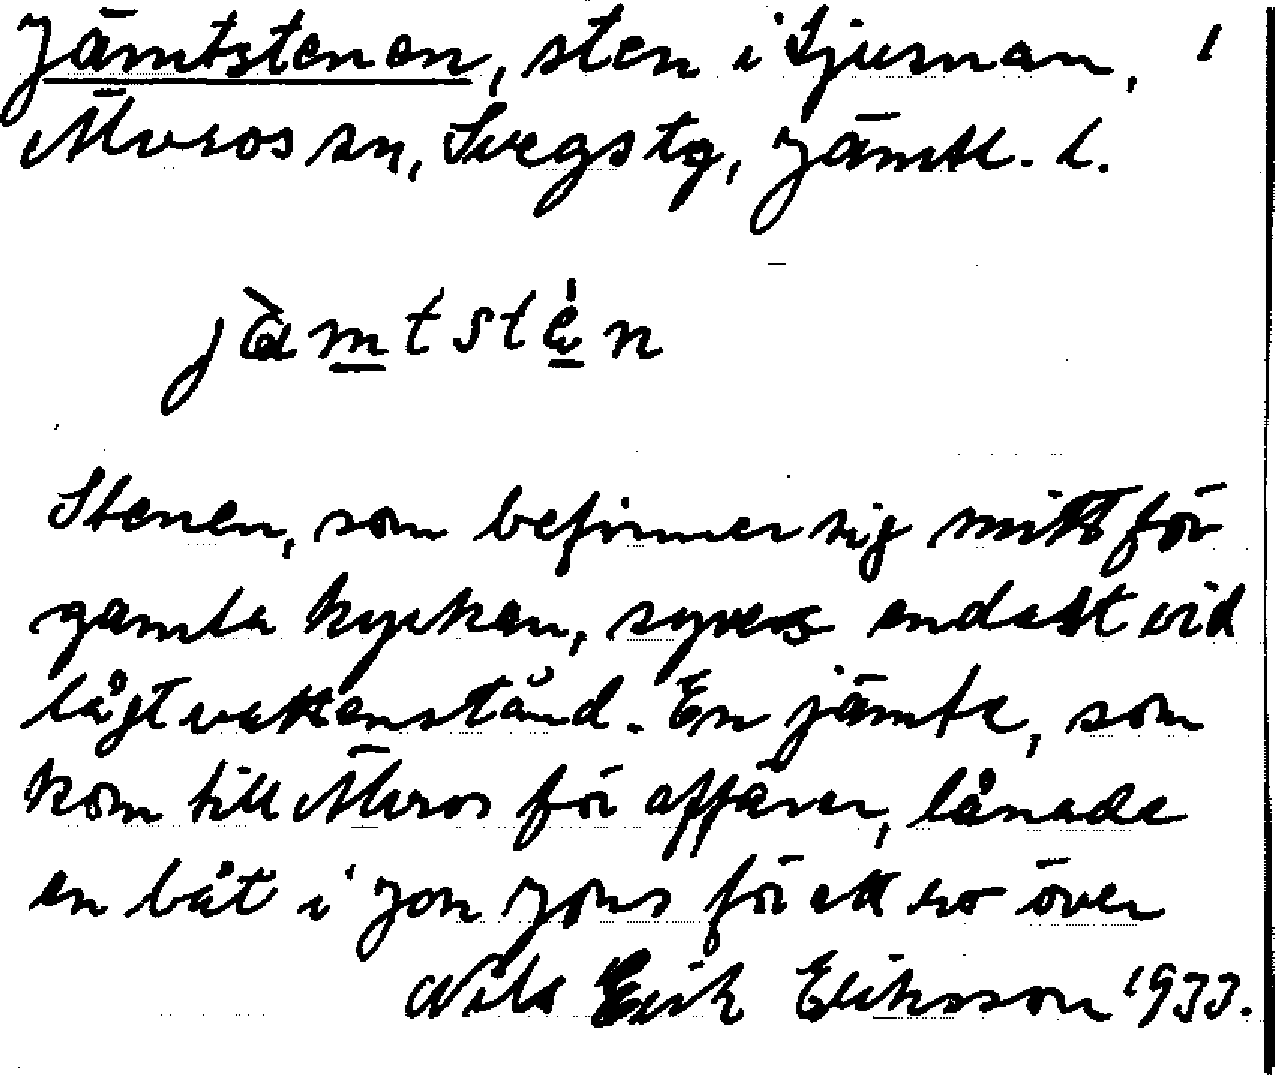 Jämtstenen, sten i Ljusnan, 1
Älvros sn, Svegs tg, Jämtl. l.
jämtstèn
Stenen, som befinner sig mitt för
gamla kyrkan, synes endast vid
lågt vattenstånd. En jämte, som
kom till Älvros för affärer, lånade
en båt i Jon Jons för att ro över
Nils Erik Eriksson 1933.